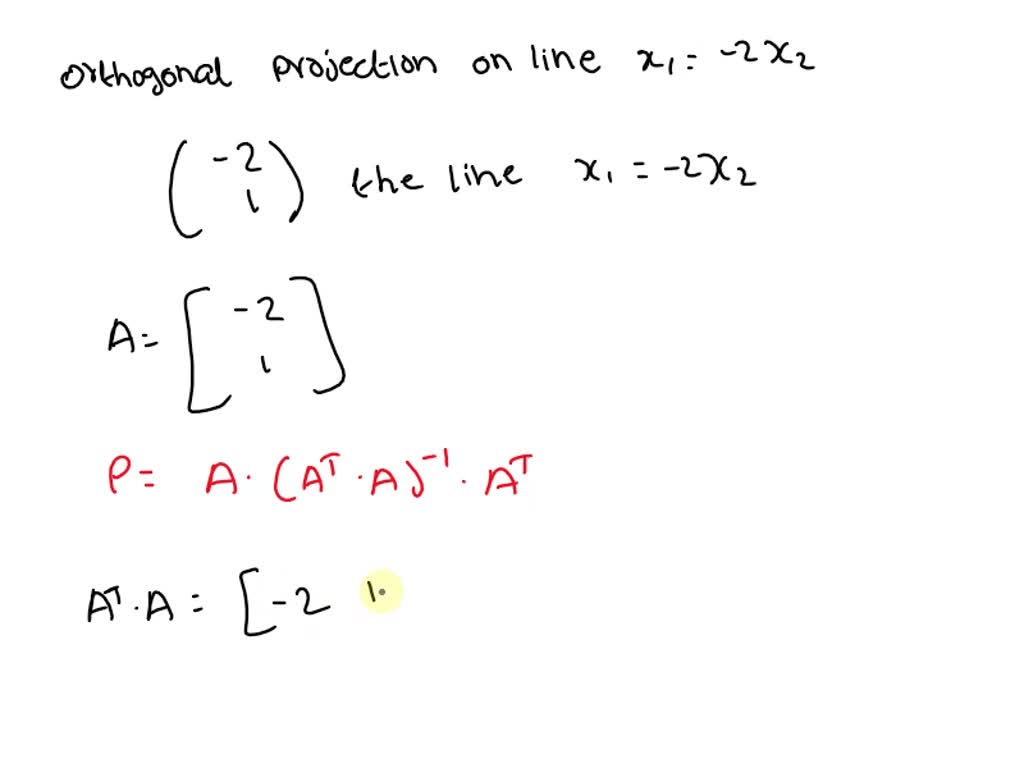 Orthogonal projection on line x₁ = -2x₂
(-2
1) the line x₁ = -2x₂
A = [-2
1]
P = A · (Aᵀ · A)⁻¹ · Aᵀ
Aᵀ · A = [-2 1